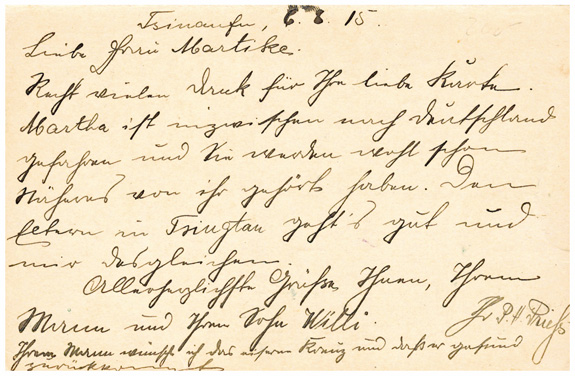 Tsinanfu, 6.8.15.
Liebe Frau Martike.
Recht vielen Dank für Ihre liebe Karte.
Martha ist inzwischen nach Deutschland
gefahren und Sie werden wohl schon
Näheres von ihr gehört haben. Den
Eltern in Tsingtau geht's gut und
mir desgleichen.
Allerherzlichste Grüße Ihnen, Ihrem
Mann und Ihrem Sohn Willi.
Ihr P. H.
Ihrem Mann wünsche ich das eiserne Kreuz und daß er gesund
zurückkommt